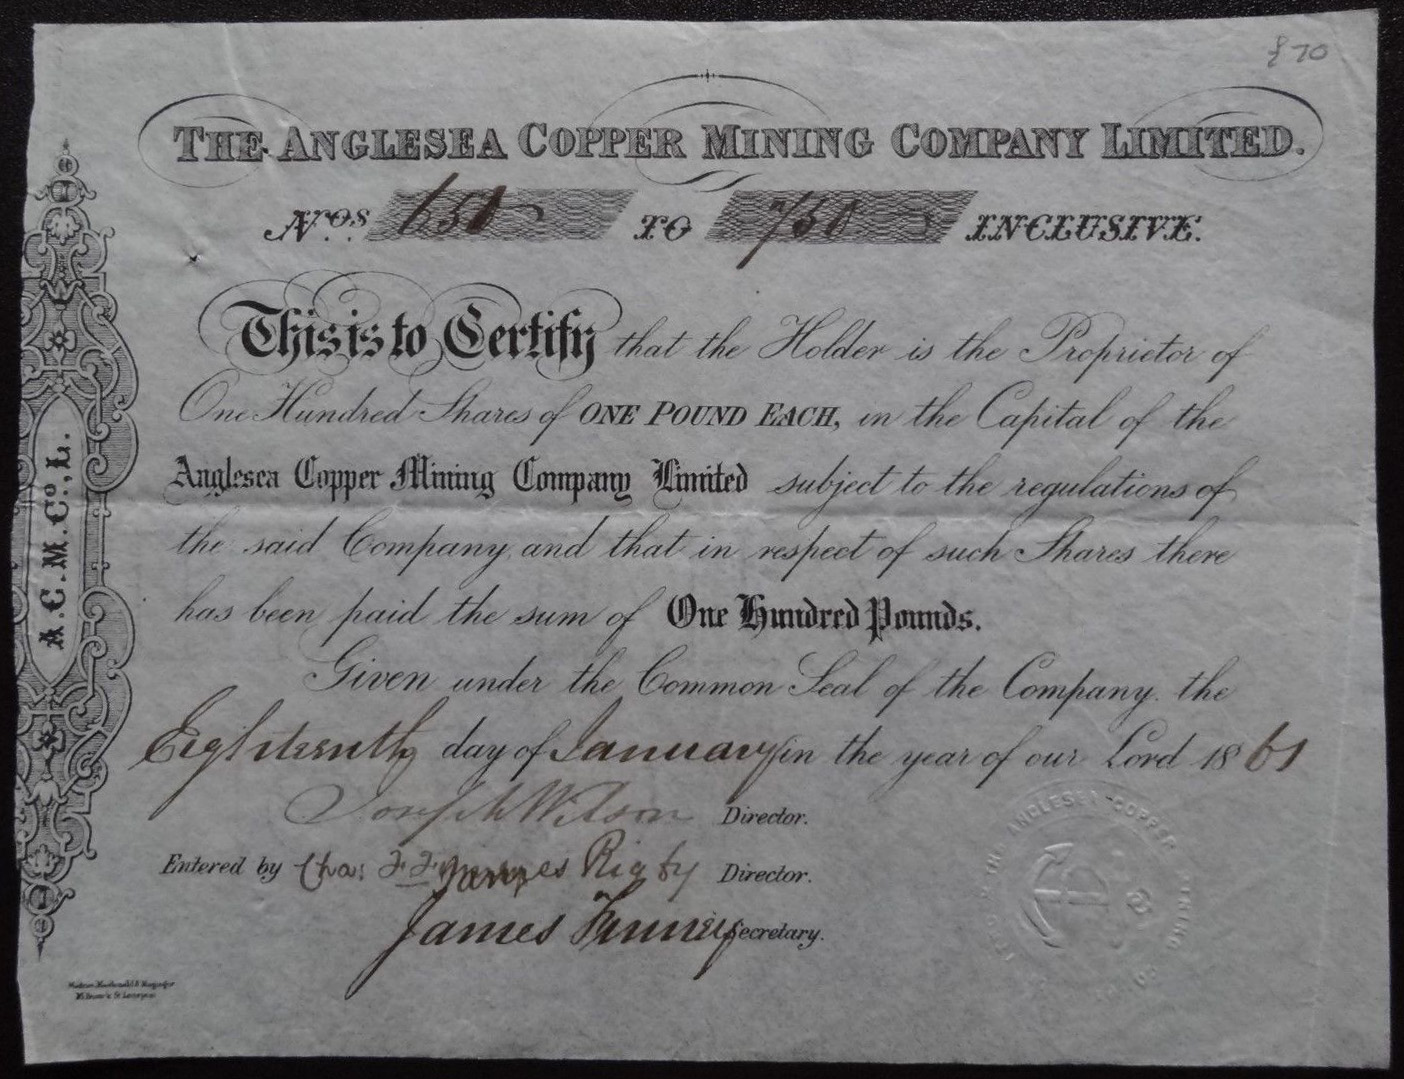 £70
THE ANGLESEA COPPER MINING COMPANY LIMITED.
Nos. 651 TO 750 INCLUSIVE.
This is to Certify that the Holder is the Proprietor of
One Hundred Shares of ONE POUND EACH, in the Capital of the
Anglesea Copper Mining Company Limited subject to the regulations of
the said Company, and that in respect of such Shares there
has been paid the sum of One Hundred Pounds.
Given under the Common Seal of the Company. the
Eighteenth day of January in the year of our Lord 1861
Joseph Wilson Director.
Entered by Chas: Rigby Director.
James Secretary.
A.C.M.Co., L.
THE ANGLESEA COPPER MINING